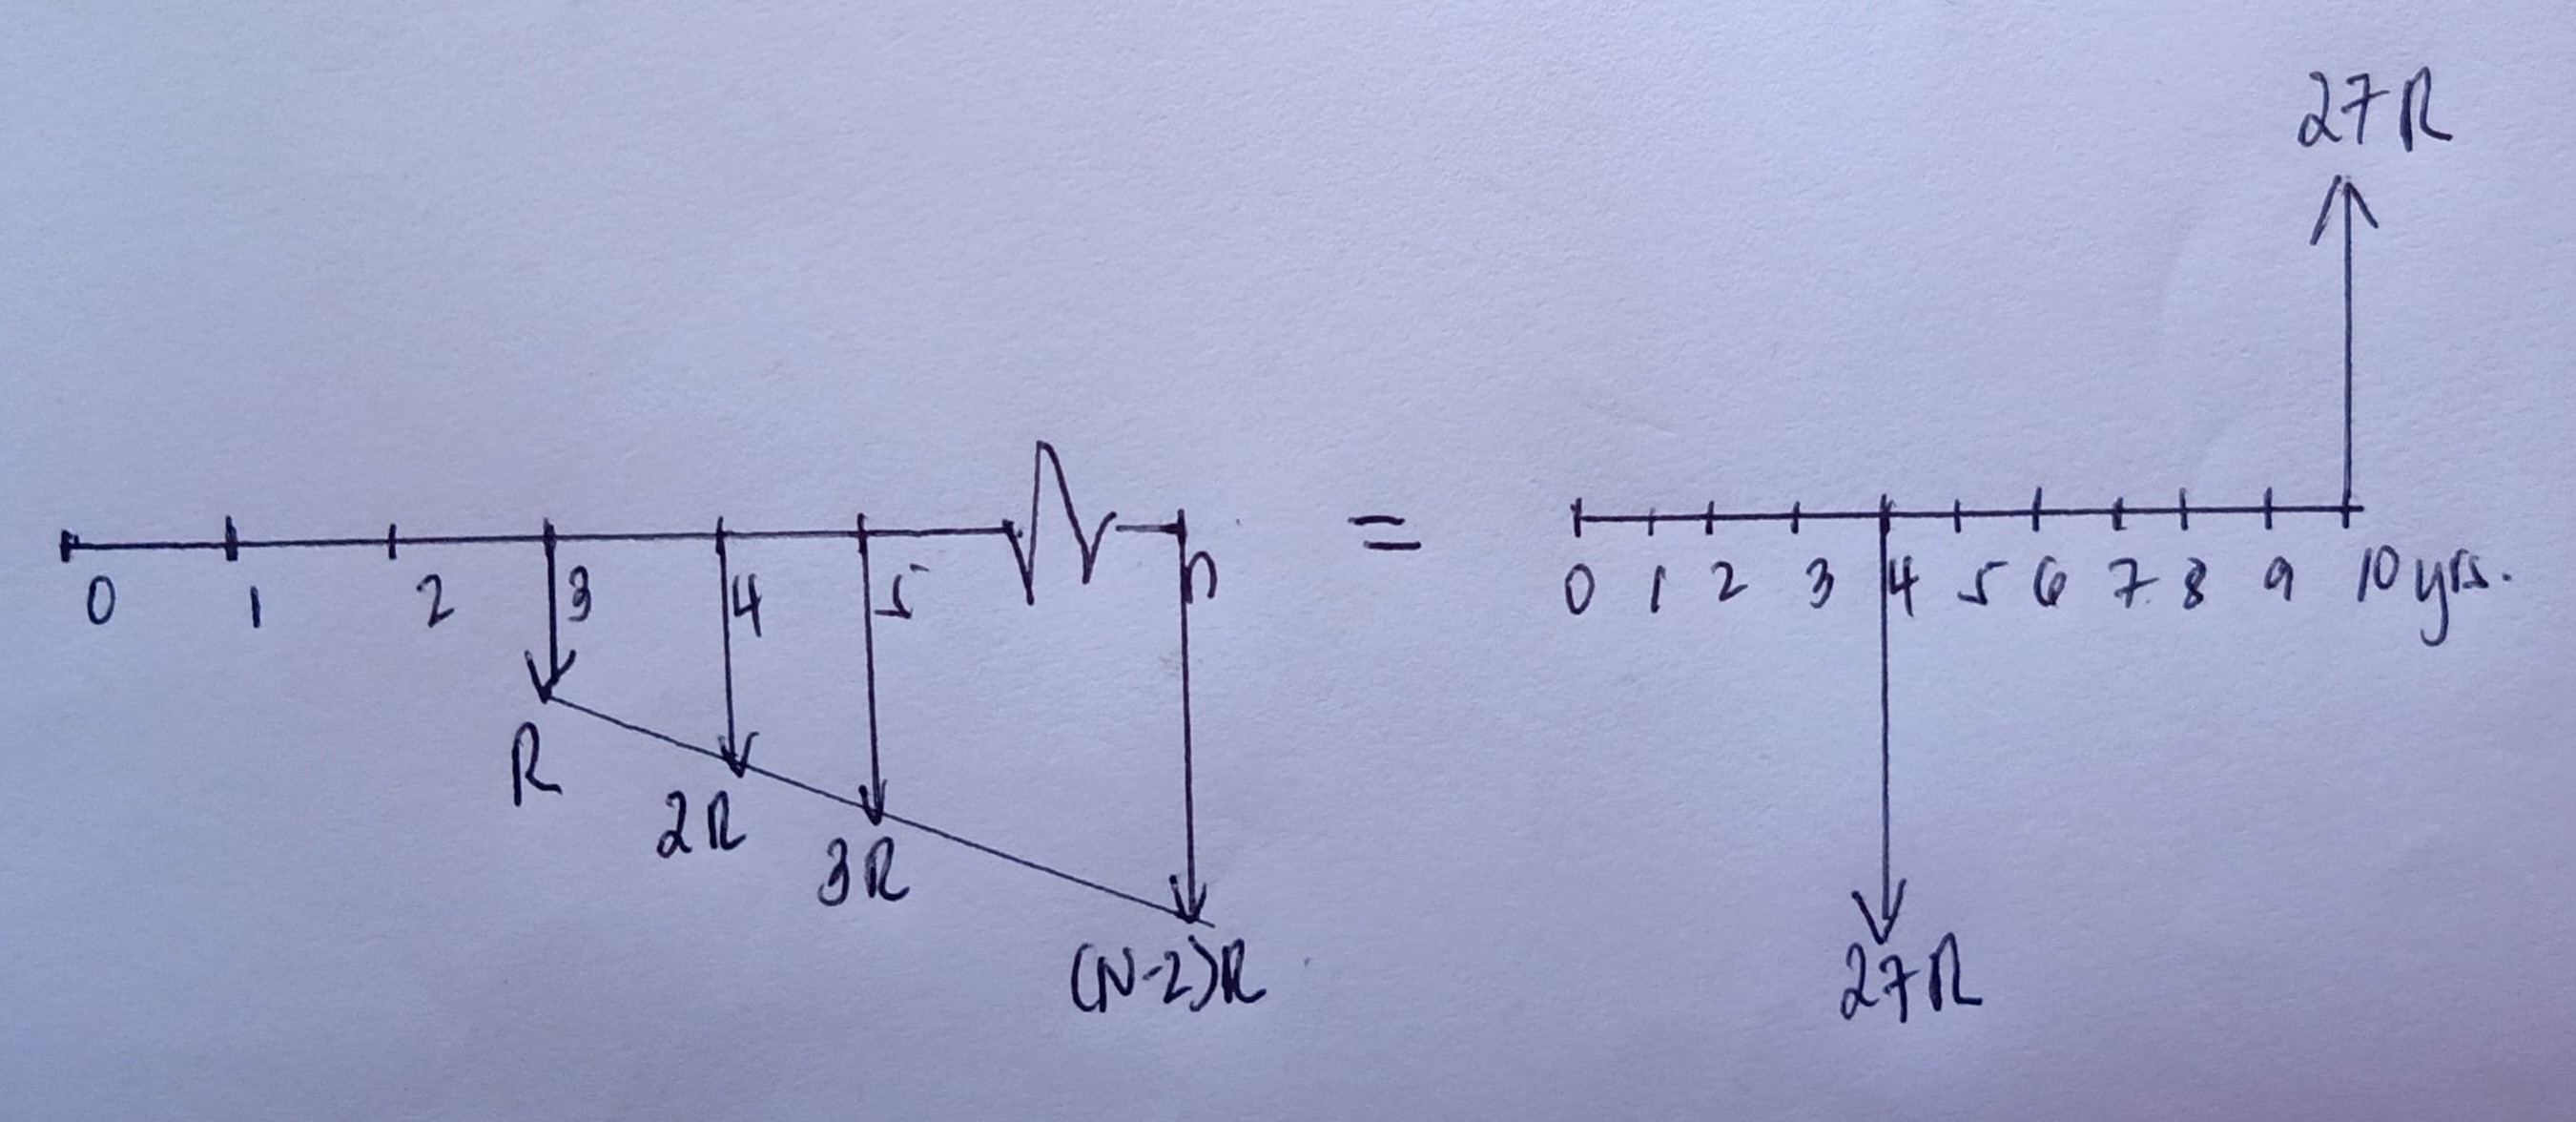 27R
=
0 1 2 3 4 5 n
0 1 2 3 4 5 6 7 8 9 10 yrs.
R
2R
3R
(N-2)R
27R